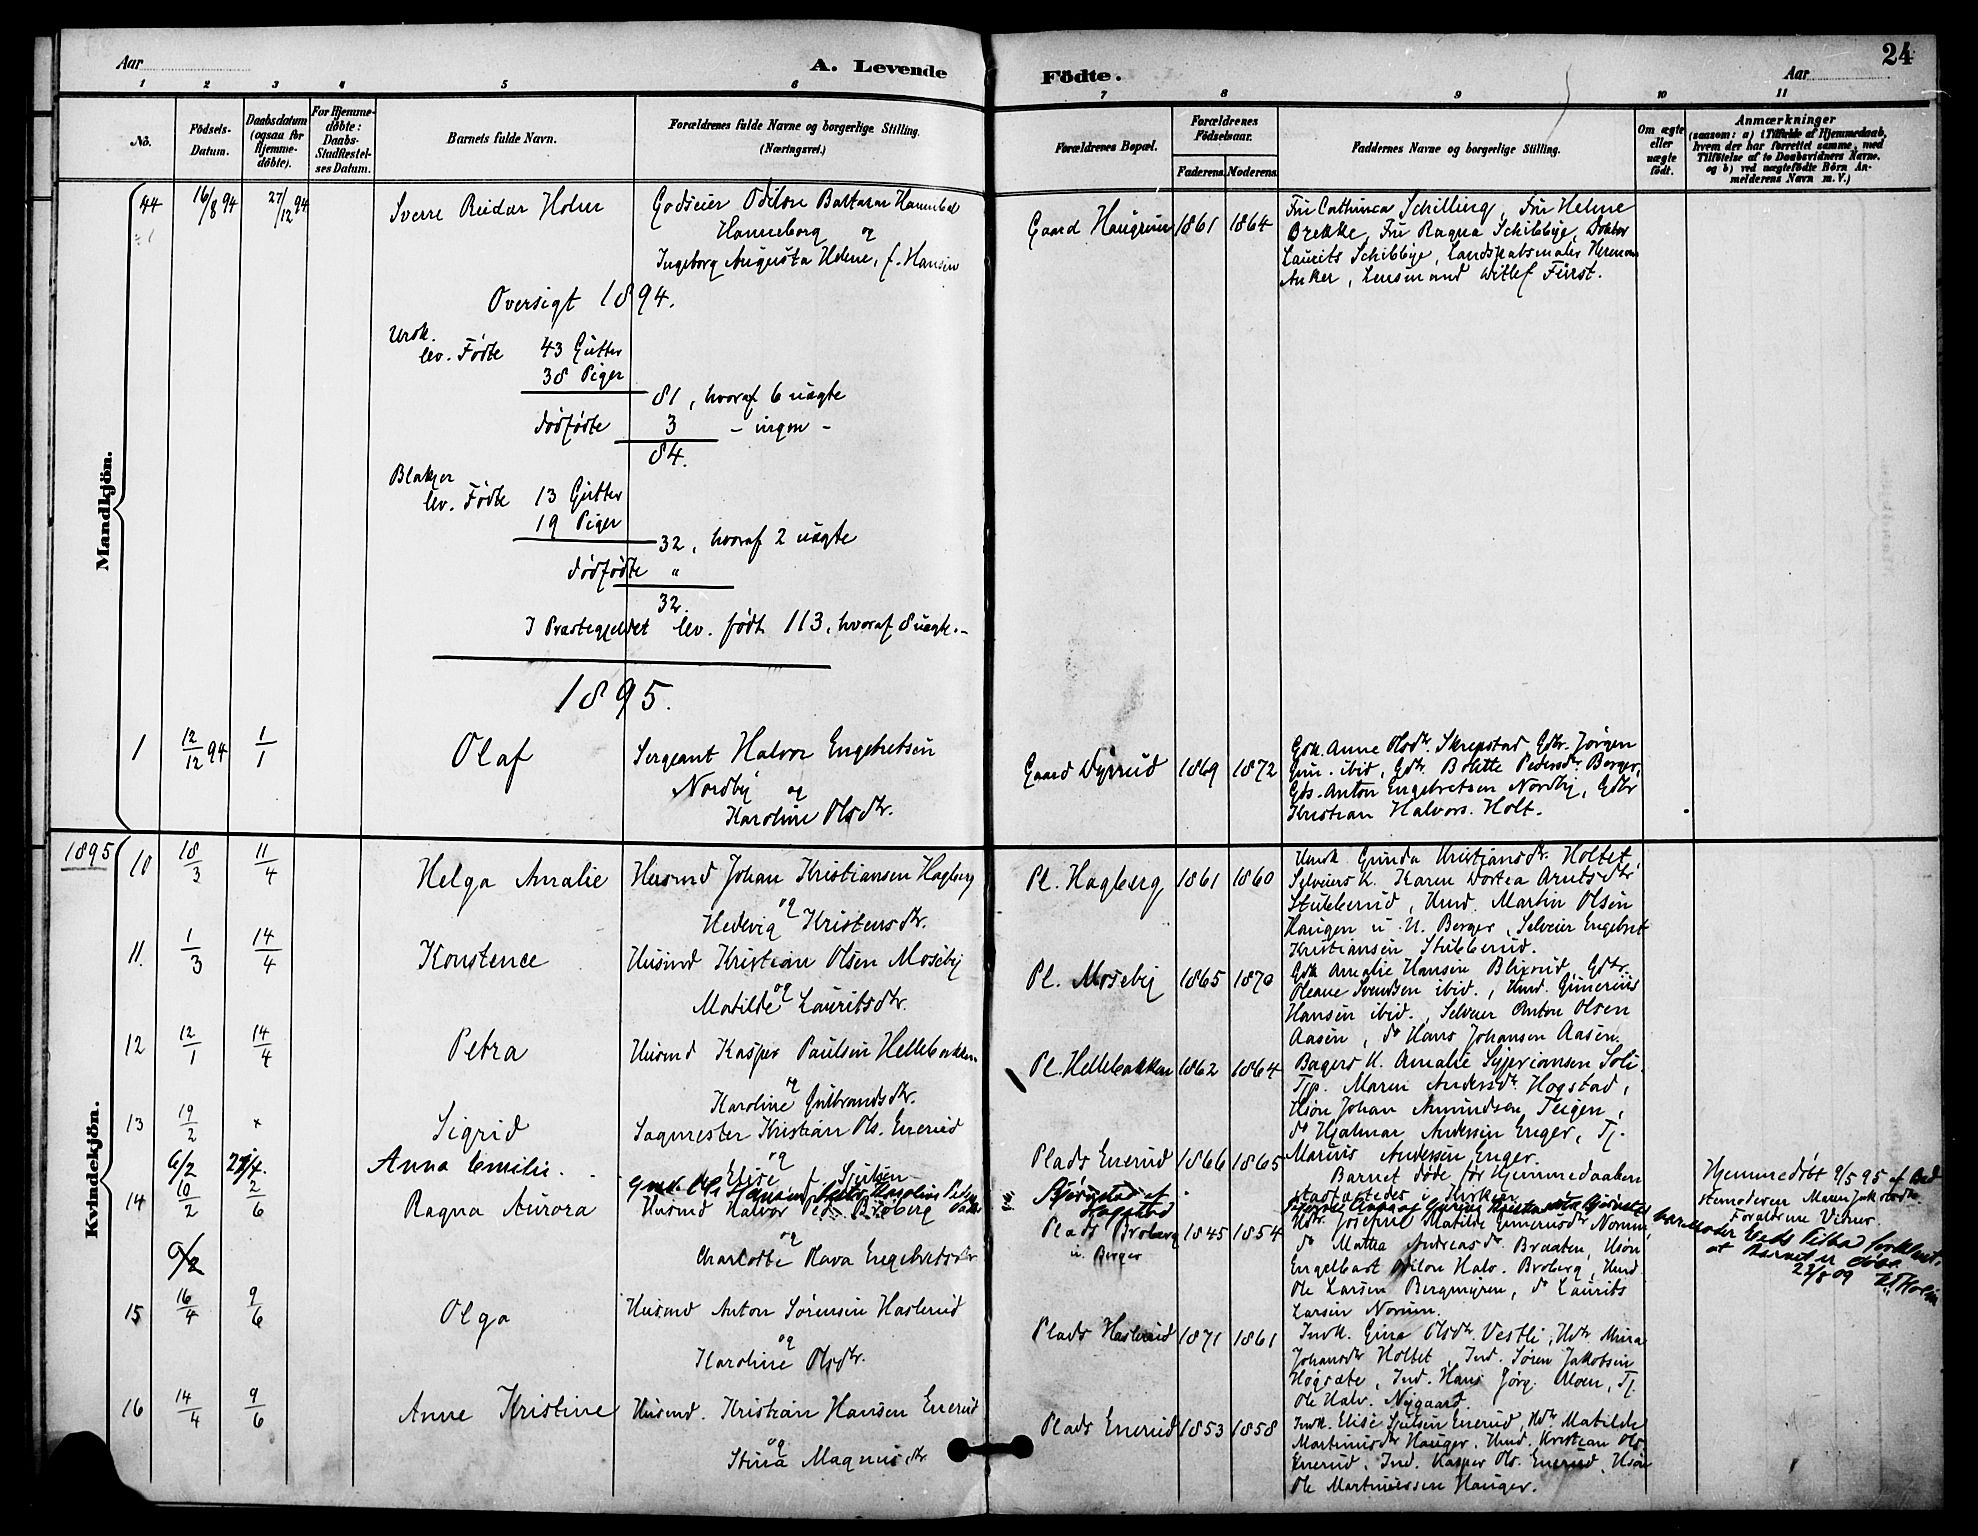 24
Aar
A. Levende
Födte.
Aar
1 2 3 4 5 6 7 8 9 10 11
No.
Födsels-Datum.
Daabsdatum (ogsaa for Hjemme-döbte).
For Hjemme-döbte: Daabs-Stadfæstel-ses Datum.
Barnets fulde Navn.
Forældrenes fulde Navne og borgerlige Stilling.
(Næringsvei.)
Forældrenes Bopæl.
Forældrenes Födselsaar.
Faderens.
Moderens.
Faddernes Navne og borgerlige Stilling.
Om ægte eller uægte födt.
Anmærkninger
(saasom: a) i Tilfælde af Hjemmedaab,
hvem der har forrettet samme, med
Tilföielse af to Daabsvidners Navne,
og b) ved uægtefödte Börn An-
melderens Navn m. V.)
Mandkjön.
44 16/8 94 27/12 94 Sverre Reidar Holm
Godseier Odilon Baltazar Hannibal
Hanneborg og
Ingeborg Augusta Helene, f. Hansen
Gaard Haugrim 1861 1864
Fru Cathinca Schilling, Fru Helene
Brekke, Fru Ragna Schibbye, Doktor
Laurits Schibbye, Landskabsmaler Herman
Anker, Lensmand Ditlef Fürst.
Oversigt 1894.
Ursk.
lev. Fødte 43 Gutter
38 Piger
81, hvoraf 6 uægte
dødfødte 3 - ingen -
84.
Blakjer
lev. Fødte 13 Gutter
19 Piger
32, hvoraf 2 uægte
dødfødte "
32.
I Præstegjeldet lev. født 113, hvoraf 8 uægte.-
1895.
1 12/12 94 1/1 Olaf
Sergeant Halvor Engebretsen
Nordby og
Karoline Olsdtr.
Gaard Dyrrud 1869 1872
Gdk. Anne Olsdtr. Skrepstad, Gdbr. Jørgen
ibid, Gdtr. Bolette Pedersdtr. Berger,
Gds. Anton Engebretsen Nordby, Gdbr
Kristian Halvors. Holt.
1895
Kvindekjön.
10 18/3 11/4 Helga Amalie
Husmd Johan Kristiansen Hagberg
og
Hedevig Kristensdtr.
Pl. Hagberg 1861 1860
Husk. Gunda Kristiansdtr. Holtet,
Selveiers K. Karen Dortea Arntsdtr
Stubberud, Husmd. Martin Olsen
Haugen u. N. Berger, Selveier Engebret
Kristiansen Stubberud.
11. 1/3 14/4 Konstence
Husmd Kristian Olsen Moseby
og
Matilde Lauritsdtr.
Pl. Moseby 1865 1870
Gdk Amalie Hansen Blixrud, Gdtr.
Oleane Svendsen ibid., Husmd. Gunerius
Hansen ibid., Selveier Anton Olsen
Aasen, do Hans Johansen Aasen.
12 12/1 14/4 Petra
Husmd Kasper Paulsen Hellebakken
og
Karoline Gulbrandsdtr.
Pl. Hellebakken 1862 1864
Bagers K. Amalie Syversen Soli
Tjp. Maren Andersdtr. Hogstad,
Husøn Johan Amundsen Teigen,
do Hjalmar Andersen Enger, Tj.
Marius Andersen Enger.
13 19/2 × Sigrid
Sagmester Kristian Ols. Enerud
og
Elise f. Sjulsen
Plads Enerud 1866 1865
Barnet døde før Hjemmedaaben
stadfæstedes i Kirken.
Hjemmedøbt 9/5 95 af Bed
stemoderen Maren Jakobsdtr.
Forældrene Vidner.
6/2 27/4. Anna Emilie.
Bjørnstad af Hogstad
14 10/2 2/6 Ragna Aurora
Husmd Halvor Ped. Broberg
og
Charlotte Olava Engebretsdtr
Plads Broberg
u. Berger
1845 1854
Hdtr. Josefine Matilde Gunerusdtr Norum,
do Mathea Andreasdtr. Braaten, Husøn
Engelbart Odilon Halv. Broberg, Husmd.
Ole Larsen Bergmyren, do Laurits
Larsen Norum.
at Barnet er død.
22/8 09
6/2
15 16/4 9/6 Olga
Husmd Anton Sørensen Haslerud
og
Karoline Olsdtr.
Plads Haslerud 1871 1861
Indk. Gina Olsdtr. Vestli, Hdtr. Mina
Johansdtr Holtet, Ind. Søren Jakobsen
Høgsæte, Ind. Hans Jørg. Moen, Tj.
Ole Halv. Nygaard.
16 14/4 9/6 Anne Kristine
Husmd. Kristian Hansen Enerud
og
Stina Magnusdtr
Plads Enerud 1853 1858
Indk. Elise Sjulsen Enerud, Hdtr. Matilde
Martinusdtr Hauger, Husmd. Kristian Ols.
Enerud, Ind. Kasper Ols. Enerud, Husøn
Ole Martiniussen Hauger.